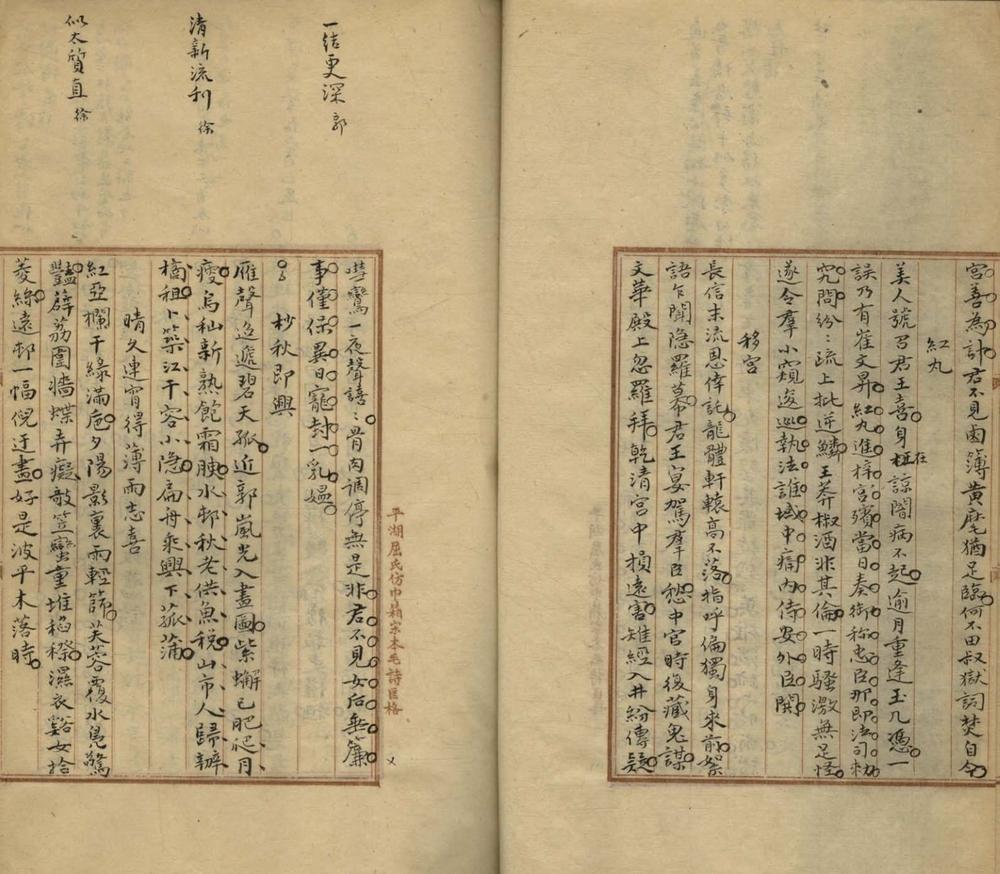 宮善為計君不見鹵簿黃麾猶足臨何不田叔獄詞焚自今
紅丸
美人號召君王喜身在諒闇病不起逾月重逢玉几憑一
誤乃有崔文昇紅丸進梓宮殯當日奏御称忠臣那即法司勑
究問紛〻疏上批逆鱗王莽椒酒非其倫一時騷激無足怪
遂令羣小窺逡巡執法誰域中瘖內侍安外臣閧
移宮
長信末流恩倖託龍體軒轅高不落指呼偏獨身來前絮
語乍聞隐羅幕君王宴駕羣臣愁中宮時復藏鬼謀
文華殿上忽羅拜乾清宮中損遠害雉經入井紛傳疑
彗鸞一夜聲譆〻骨肉調停無是非君不見女后垂簾
事僅保異日寵封一乳媼
杪秋即興
雁聲迢遞碧天孤近郭嵐光入畫圖紫蠏已肥肥月
瘦烏秈新熟飽霜腴水邨秋老供魚稅山市人歸辦
橘租卜築江干容小隐扁舟乘興下菰蒲
晴久連宵得薄雨志喜
紅亞欄干綠滿卮夕陽影裏雨輕篩芙蓉覆水鳧驚
豔薜荔圍墻蝶弄癡敲笠蠻童堆稻穄濕衣谿女拾
菱絲遠邨一幅倪迂畫好是波平木落時
一結更深 郭
清新流利 徐
似太質直 徐
平湖屈氏仿巾箱宋本毛詩匡格